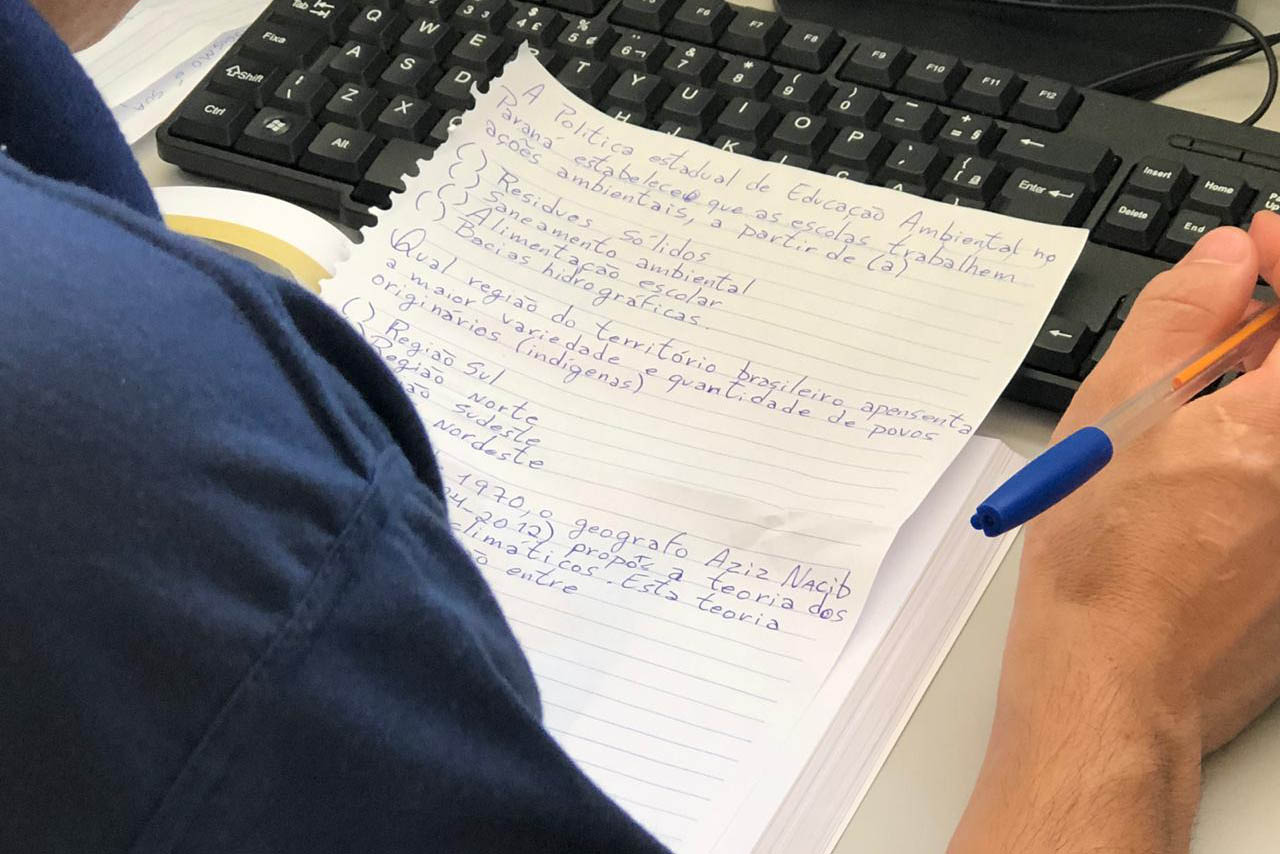 A Política estadual de Educação Ambiental no
Paraná estabelece que as escolas trabalhem
ações ambientais, a partir de (a)
( ) Resíduos sólidos
( ) Saneamento ambiental
( ) Alimentação escolar
Bacias hidrográficas.
Qual região do território brasileiro apensenta
a maior variedade e quantidade de povos
originários (indígenas)
( ) Região Sul
Região Norte
Sudeste
Nordeste
1970, o geografo Aziz Nacib
-2012) propôs a teoria dos
climáticos. Esta teoria
entre
Tab Q W E R T Y U I O P
Fixa A S D H J K L Ç Enter
Shift Z X C
Ctrl Alt
F6 F7 F8 F9 F10 F11 F12
Insert Home
Delete End